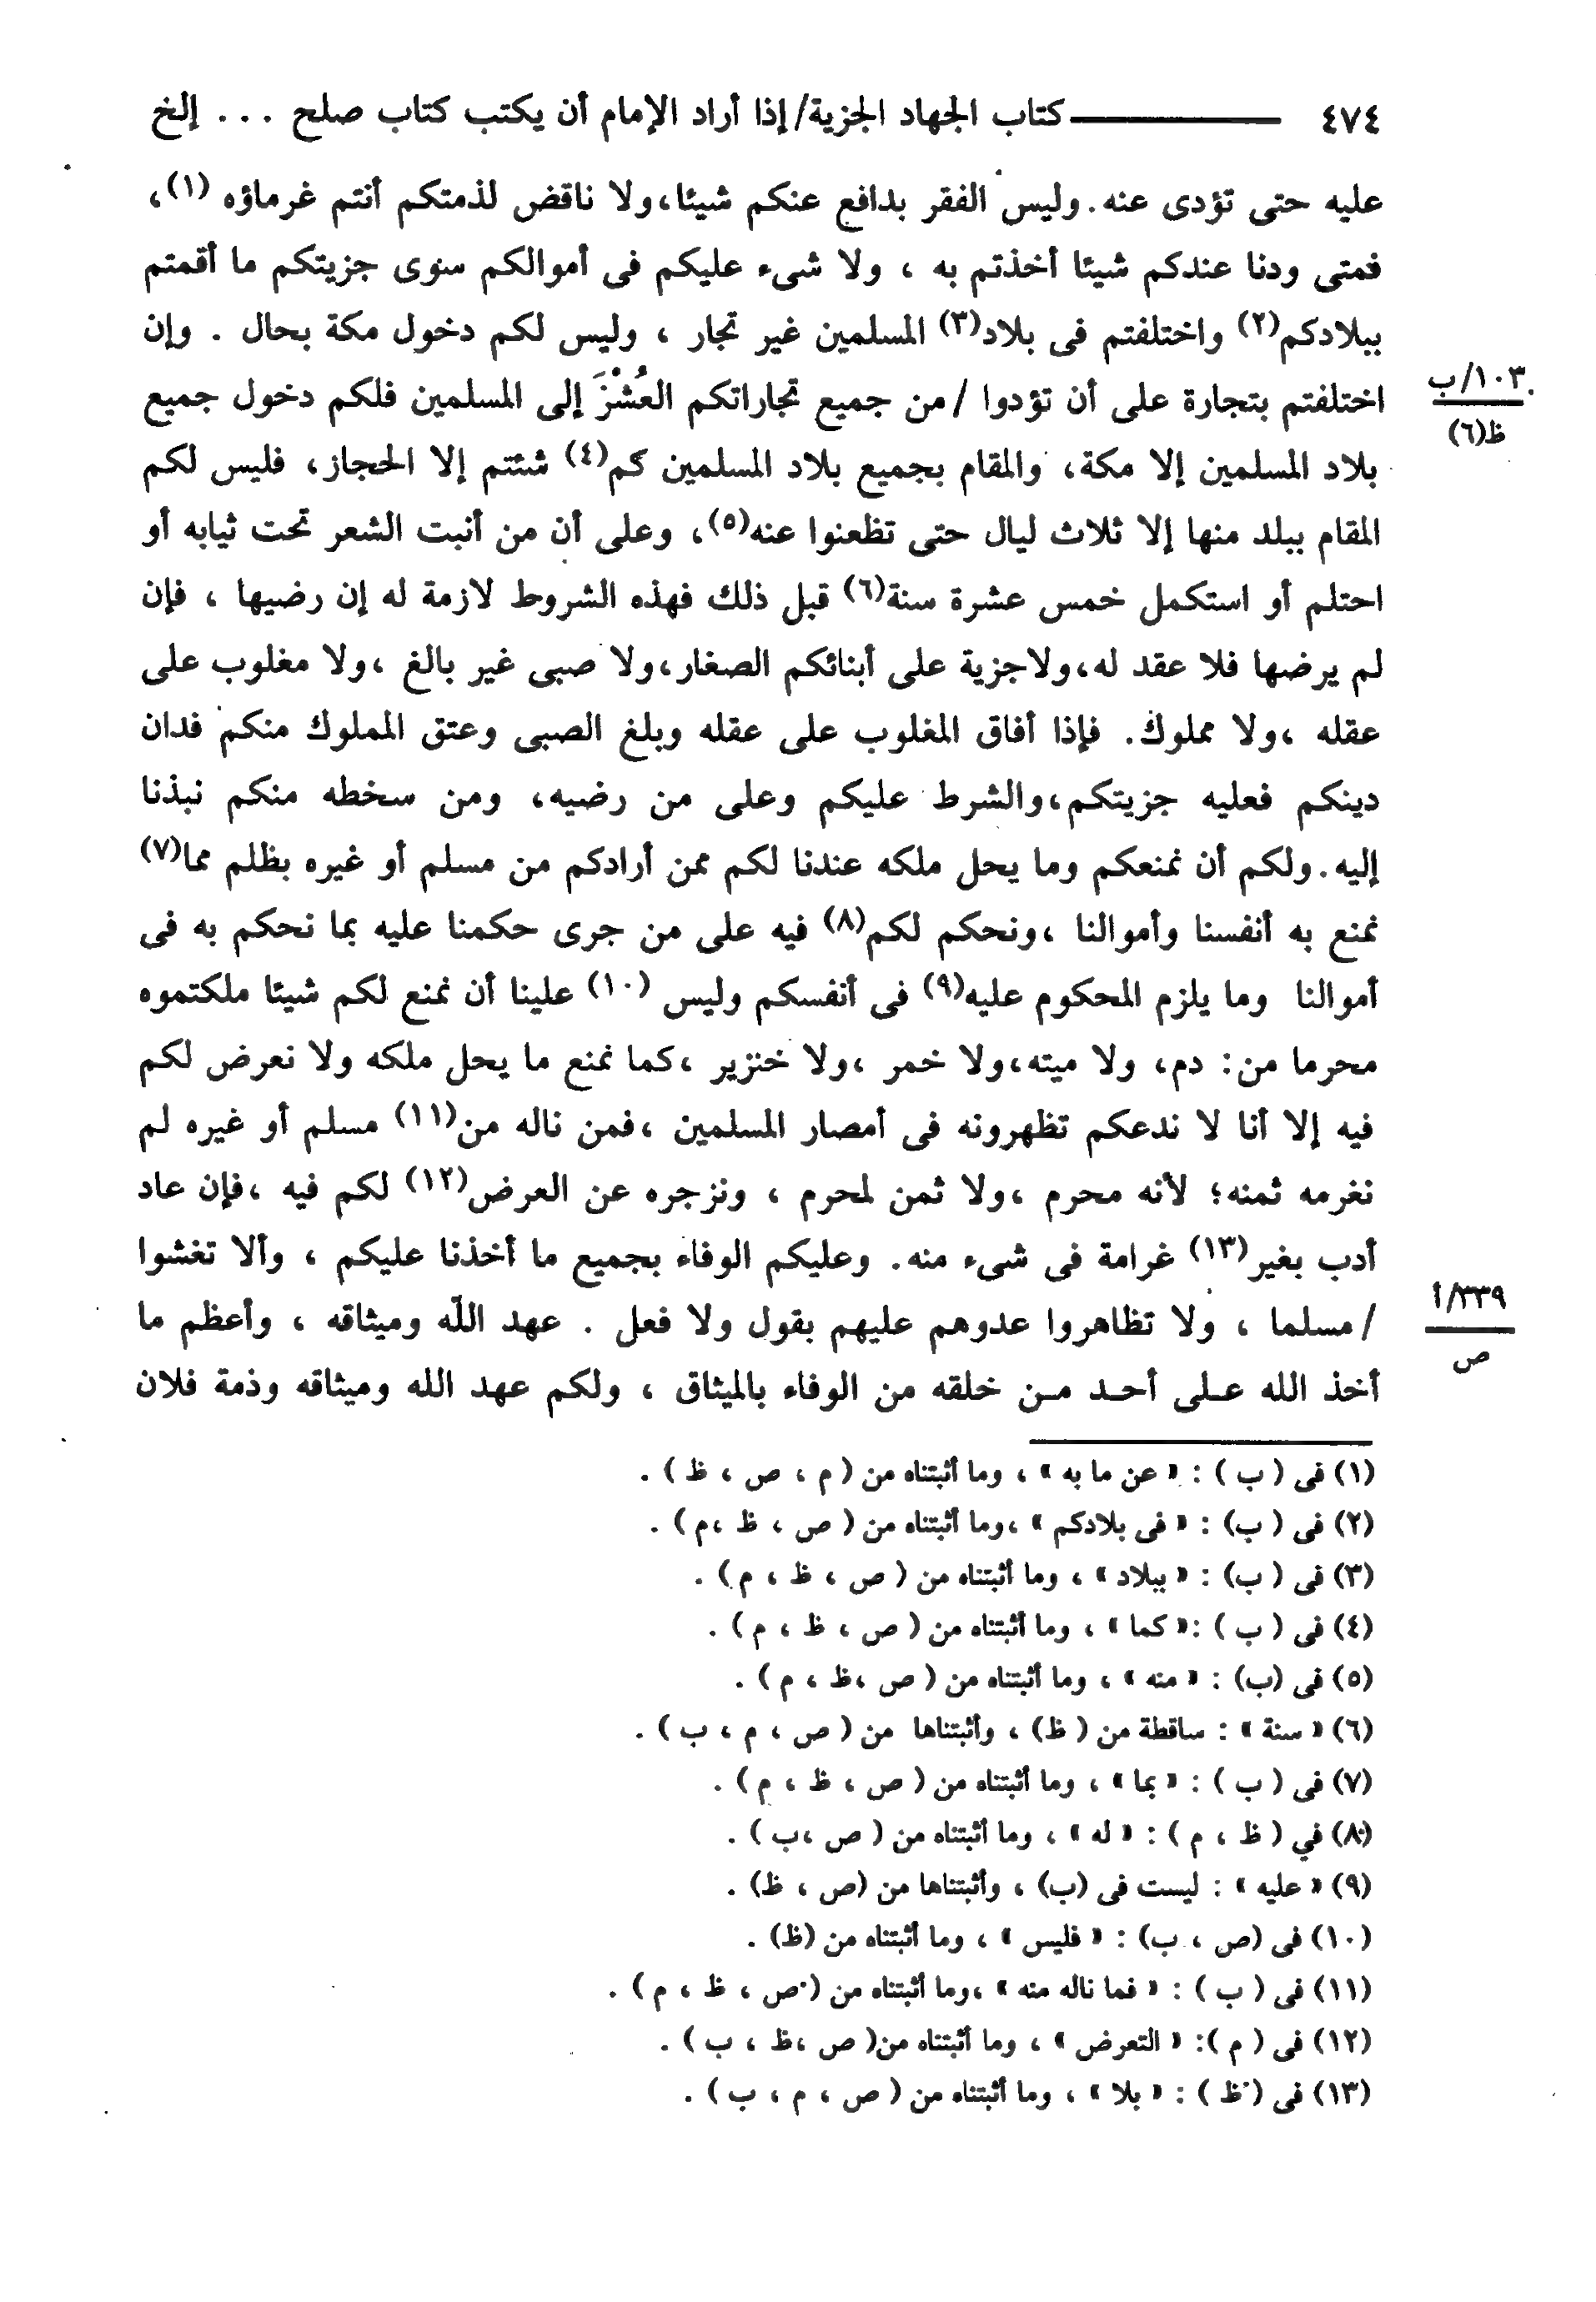 ٤٧٤ ——— كتاب الجهاد الجزية/ إذا أراد الإمام أن يكتب كتاب صلح . . . إلخ
عليه حتى تؤدى عنه. وليس الفقر بدافع عنكم شيئا، ولا ناقض لذمتكم أنتم غرماؤه (١)،
فمتى ودنا عندكم شيئا أخذتم به ، ولا شىء عليكم فى أموالكم سوى جزيتكم ما أقمتم
ببلادكم(٢) واختلفتم فى بلاد(٣) المسلمين غير تجار ، وليس لكم دخول مكة بحال . وإن
اختلفتم بتجارة على أن تؤدوا / من جميع تجاراتكم العُشْرَ إلى المسلمين فلكم دخول جميع
١٠٣/ب
ظ(٦)
بلاد المسلمين إلا مكة، والمقام بجميع بلاد المسلمين كم(٤) شئتم إلا الحجاز، فليس لكم
المقام ببلد منها إلا ثلاث ليال حتى تظعنوا عنه(٥)، وعلى أن من أنبت الشعر تحت ثيابه أو
احتلم أو استكمل خمس عشرة سنة(٦) قبل ذلك فهذه الشروط لازمة له إن رضيها ، فإن
لم يرضها فلا عقد له، ولاجزية على أبنائكم الصغار، ولا صبى غير بالغ ، ولا مغلوب على
عقله ، ولا مملوك. فإذا أفاق المغلوب على عقله وبلغ الصبى وعتق المملوك منكم فدان
دينكم فعليه جزيتكم، والشرط عليكم وعلى من رضيه، ومن سخطه منكم نبذنا
إليه. ولكم أن نمنعكم وما يحل ملكه عندنا لكم ممن أرادكم من مسلم أو غيره بظلم مما(٧)
نمنع به أنفسنا وأموالنا ، ونحكم لكم(٨) فيه على من جرى حكمنا عليه بما نحكم به فى
أموالنا وما يلزم المحكوم عليه(٩) فى أنفسكم وليس (١٠) علينا أن نمنع لكم شيئا ملكتموه
محرما من: دم، ولا ميته، ولا خمر ، ولا خنزير ، كما نمنع ما يحل ملكه ولا نعرض لكم
فيه إلا أنا لا ندعكم تظهرونه فى أمصار المسلمين ، فمن ناله من(١١) مسلم أو غيره لم
نغرمه ثمنه؛ لأنه محرم ، ولا ثمن لمحرم ، ونزجره عن العرض(١٢) لكم فيه ، فإن عاد
أدب بغير(١٣) غرامة فى شىء منه. وعليكم الوفاء بجميع ما أخذنا عليكم ، وألا تغشوا
/ مسلما ، ولا تظاهروا عدوهم عليهم بقول ولا فعل . عهد اللّه وميثاقه ، وأعظم ما
٣٣٩/أ
ص
أخذ الله على أحد من خلقه من الوفاء بالميثاق ، ولكم عهد الله وميثاقه وذمة فلان
(١) فى ( ب ) : « عن ما به » ، وما أثبتناه من ( م ، ص ، ظ ) .
(٢) فى ( ب) : « فى بلادكم » ، وما أثبتناه من ( ص ، ظ ، م ) .
(٣) فى ( ب) : « ببلاد » ، وما أثبتناه من ( ص ، ظ ، م ) .
(٤) فى ( ب ) : « كما » ، وما أثبتناه من ( ص ، ظ ، م ) .
(٥) فى (ب) : « منه » ، وما أثبتناه من ( ص ، ظ ، م ) .
(٦) « سنة » : ساقطة من ( ظ) ، وأثبتناها من ( ص ، م ، ب ) .
(٧) فى ( ب ) : « بما » ، وما أثبتناه من ( ص ، ظ ، م ) .
(٨) في ( ظ ، م ) : « له » ، وما أثبتناه من ( ص ، ب ) .
(٩) « عليه » : ليست فى (ب) ، وأثبتناها من (ص ، ظ) .
(١٠) فى (ص ، ب) : « فليس » ، وما أثبتناه من (ظ) .
(١١) فى ( ب ) : « فما ناله منه » ، وما أثبتناه من ( ص ، ظ ، م ) .
(١٢) فى ( م ): « التعرض » ، وما أثبتناه من( ص ، ظ ، ب ) .
(١٣) فى ( ظ ) : « بلا » ، وما أثبتناه من ( ص ، م ، ب ) .